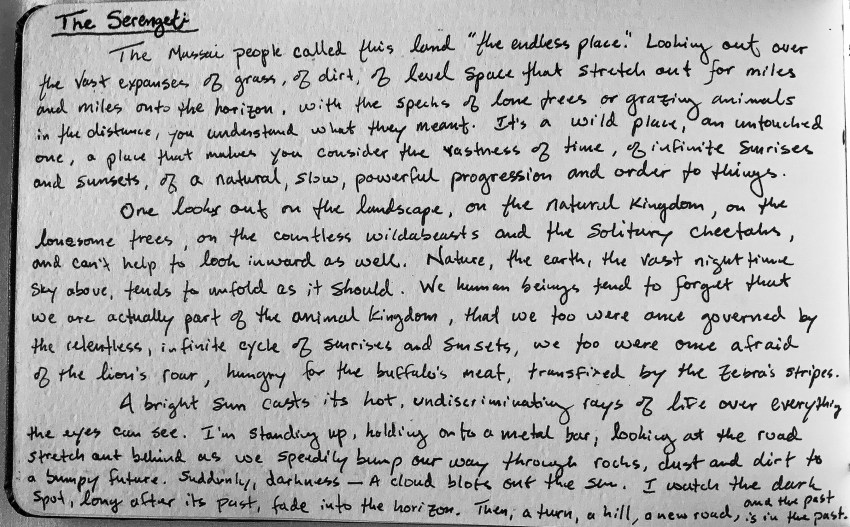 The Serengeti
The Massai people called this land "the endless place." Looking out over
the vast expanses of grass, of dirt, of level space that stretch out for miles
and miles onto the horizon, with the specks of lone trees or grazing animals
in the distance, you understand what they meant. It's a wild place, an untouched
one, a place that makes you consider the vastness of time, of infinite sunrises
and sunsets, of a natural, slow, powerful progression and order to things.
One looks out on the landscape, on the natural kingdom, on the
lonesome trees, on the countless wildabeasts and the solitary cheetahs,
and can't help to look inward as well. Nature, the earth, the vast night time
sky above, tends to unfold as it should. We human beings tend to forget that
we are actually part of the animal kingdom, that we too were once governed by
the relentless, infinite cycle of sunrises and sunsets, we too were once afraid
of the lion's roar, hungry for the buffalo's meat, transfixed by the zebra's stripes.
A bright sun casts its hot, undiscriminating rays of life over everything
the eyes can see. I'm standing up, holding onto a metal bar, looking at the road
stretch out behind as we speedily bump our way through rocks, dust and dirt to
a bumpy future. Suddenly, darkness — A cloud blots out the sun. I watch the dark
spot, long after its past, fade into the horizon. Then, a turn, a hill, a new road, and the past
is in the past.